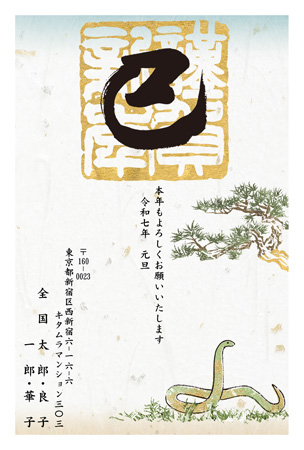 謹賀新年
巳
本年もよろしくお願いいたします
令和七年　元旦
〒160-0023
東京都新宿区西新宿六-一六-六
キタムラマンション三〇三
全国太郎・良子
一郎・華子